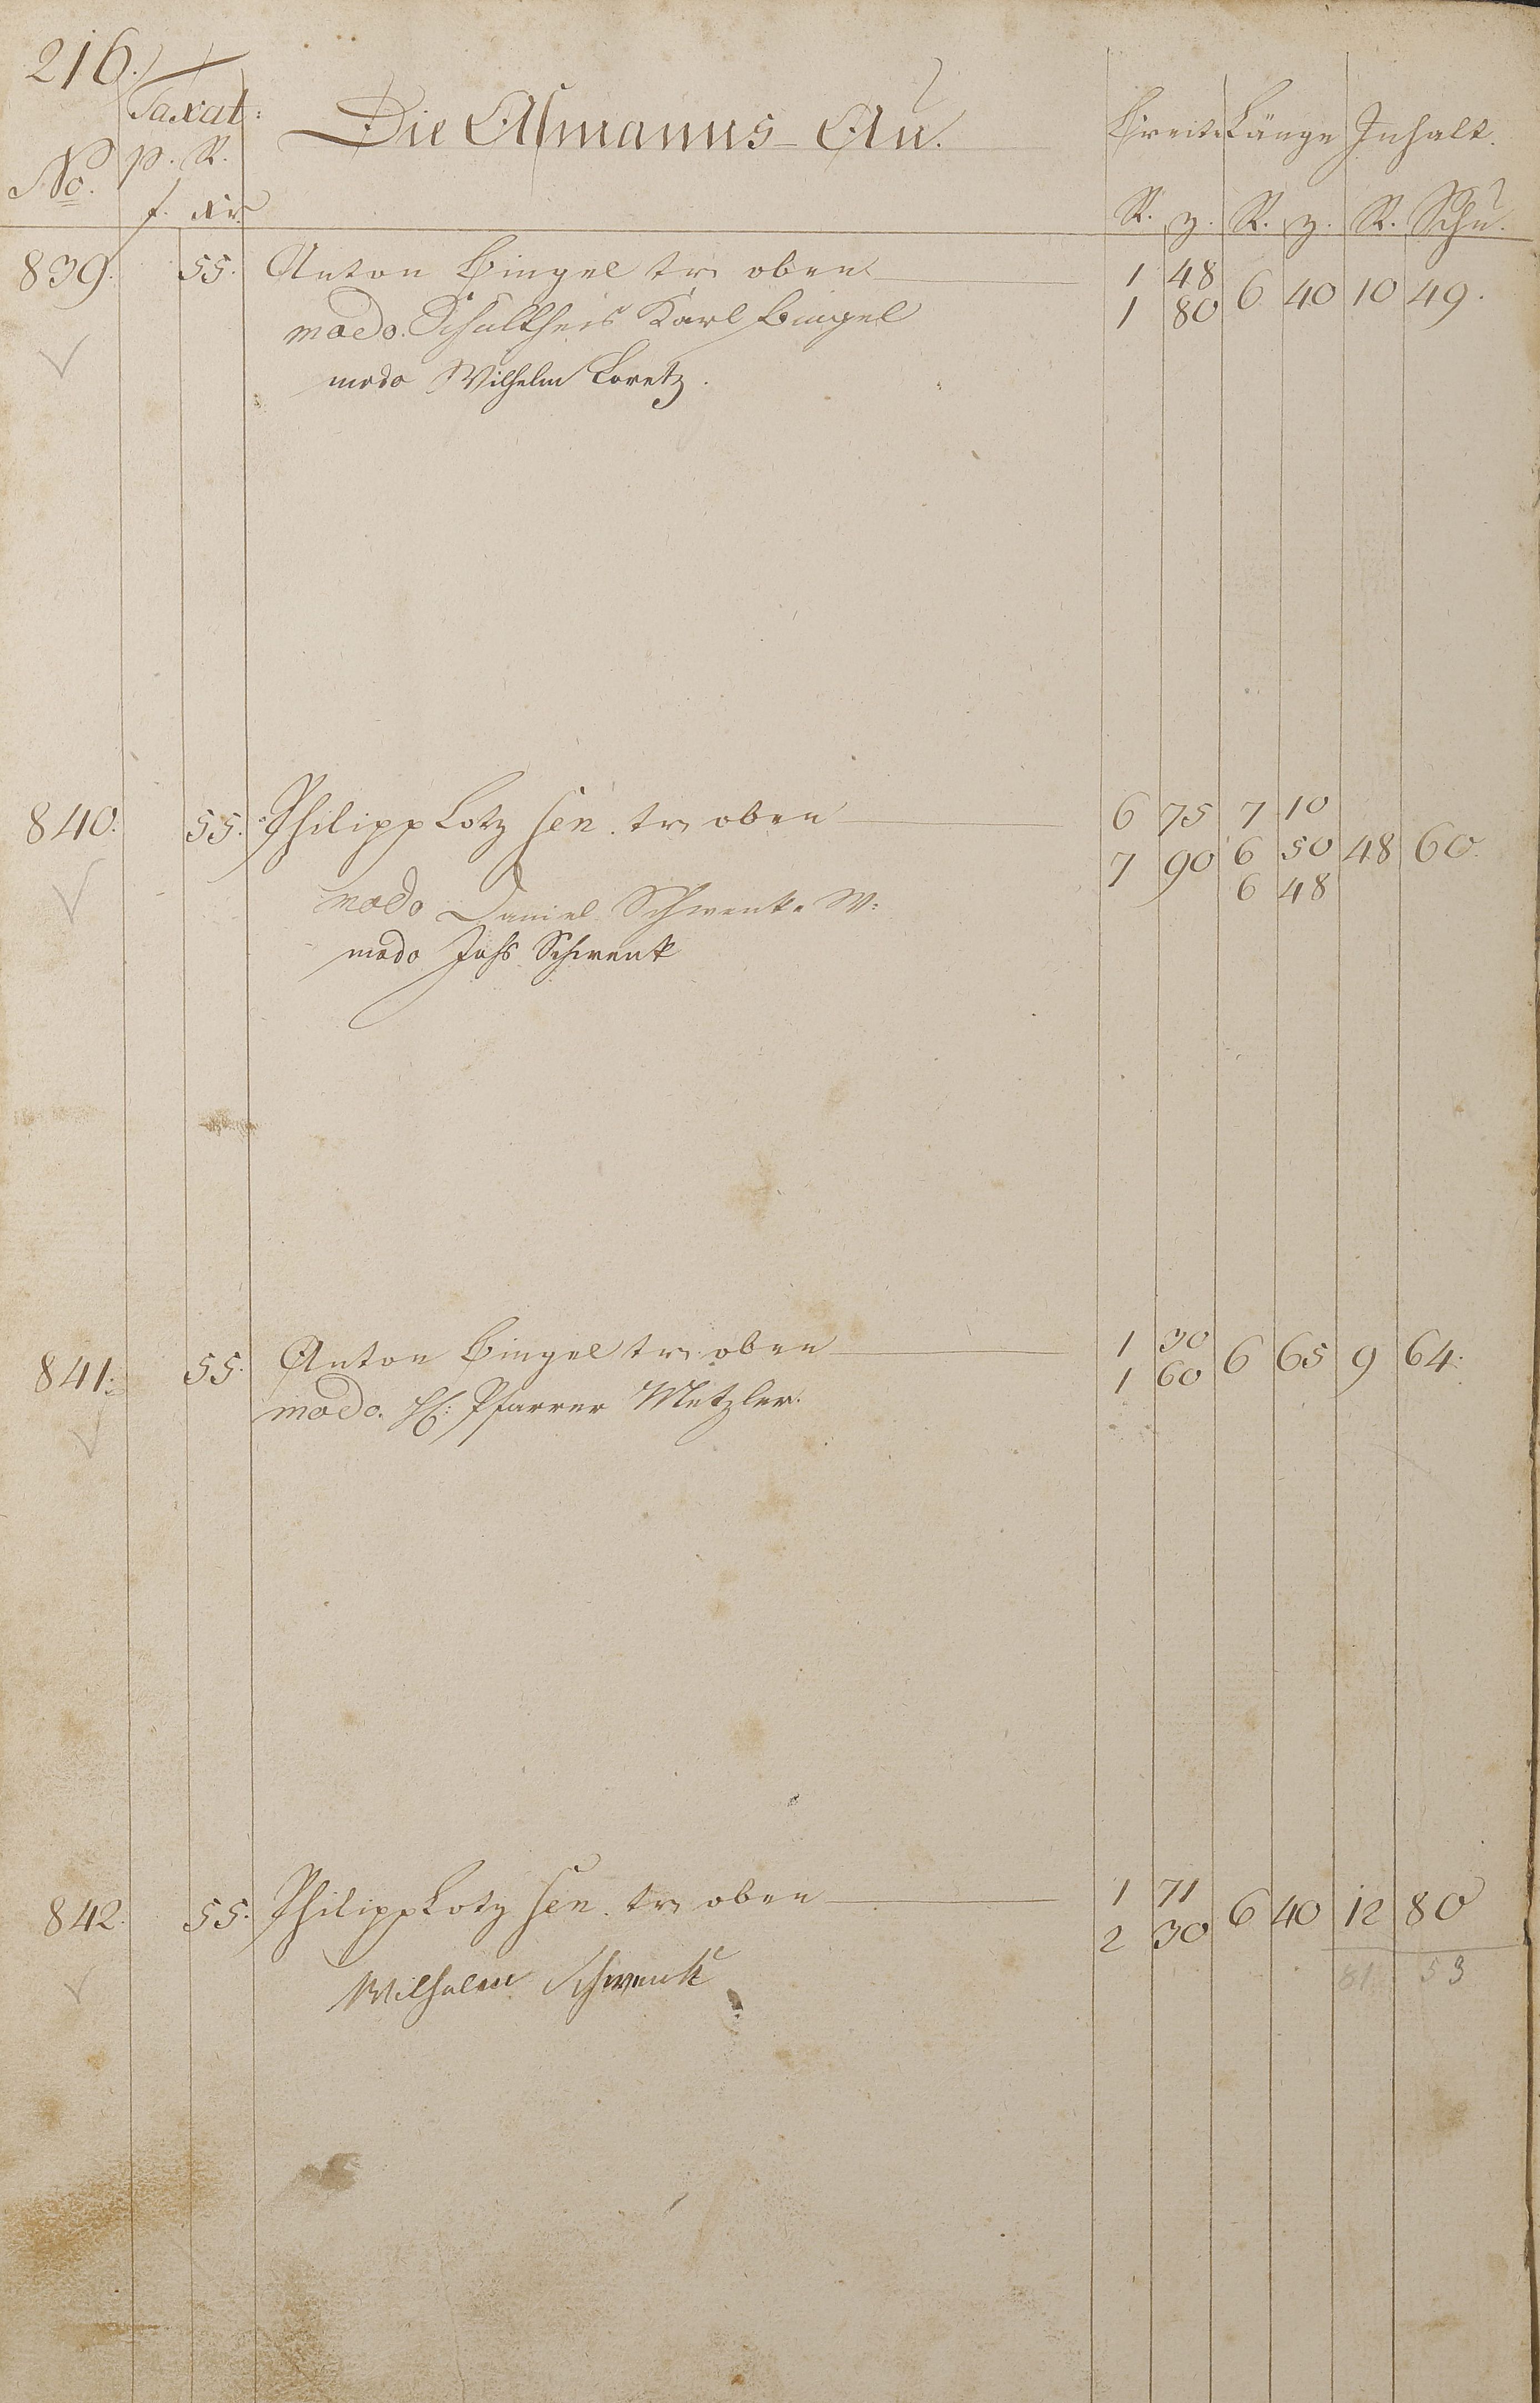 216.
Taxat:
No. p. R.
f. xr.
Die Asmanns-Au.
Breite Länge Inhalt.
R. z. R. z. R. Schu.
839. 55. Anton Bingel tr. oben 1 48 6 40 10 49.
1 80
modo. Schultheis Karl Bingel
modo Wilhelm Loretz.
840. 55. Philipp Lotz sen. tr. oben 6 75 7 10
7 90 6 50 48 60.
6 48
modo Daniel Schwenk W:
modo Johs Schwenk
841. 55. Anton Bingel tr. oben 1 30 6 65 9 64.
1 60
modo. H: Pfarrer Metzler.
842. 55. Philipp Lotz sen. tr. oben 1 71 6 40 12 80
2 30
81 53
Wilhelm Schwenk